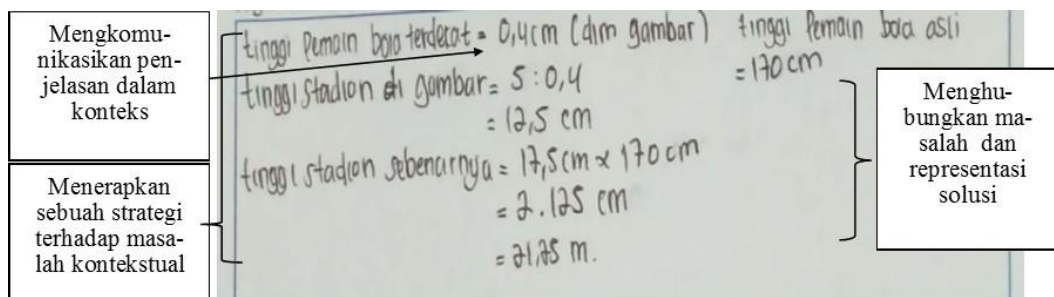 Mengkomu-
nikasikan pen-
jelasan dalam
konteks
Menerapkan
sebuah strategi
terhadap masa-
lah kontekstual
tinggi Pemain bola terdekat = 0,4cm (dlm gambar)
tinggi stadion di gambar = 5 : 0,4
= 12,5 cm
tinggi stadion sebenarnya = 17,5cm x 170 cm
= 2.125 cm
= 21,25 m.
tinggi Pemain bola asli
= 170 cm
Menghu-
bungkan ma-
salah dan
representasi
solusi